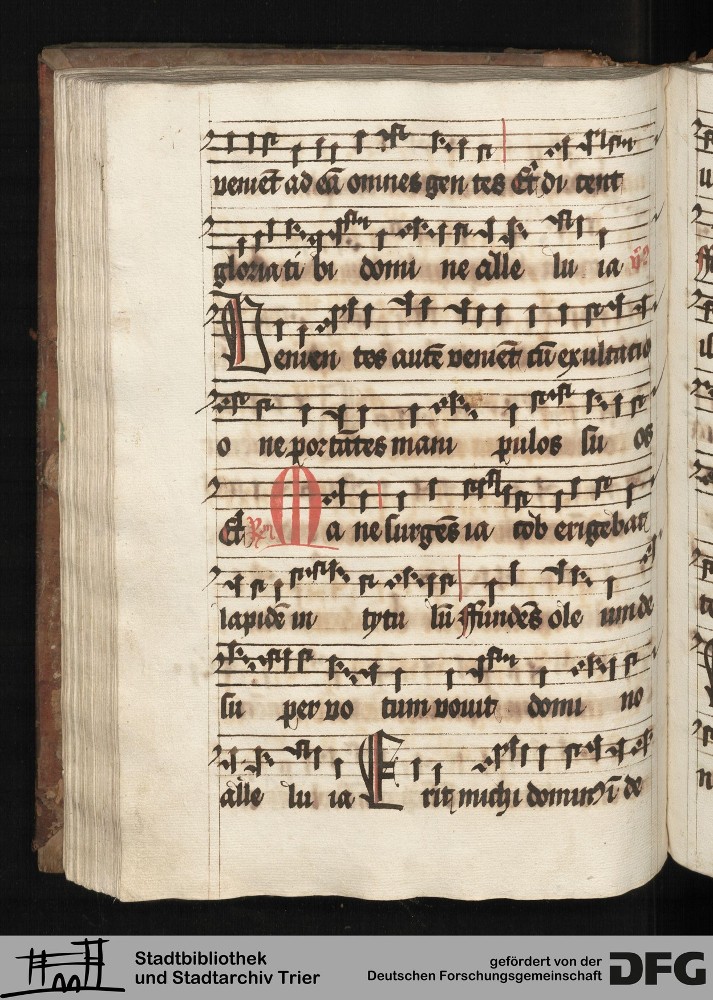 venient ad eā omnes gen tes Et di cent
gloria ti bi domi ne alle lu ia v̄s
Venien tes autē veniēt cū exultatio
o ne portātes mani pulos su os
Et Rm̄ Ma ne surgēs ia cob erigebat
lapidē in tytu lū ffundēs ole um de
su per vo tum vovit domi no
alle lu ia Erit michi dominꝰ ī de
Stadtbibliothek
und Stadtarchiv Trier
gefördert von der
Deutschen Forschungsgemeinschaft
DFG